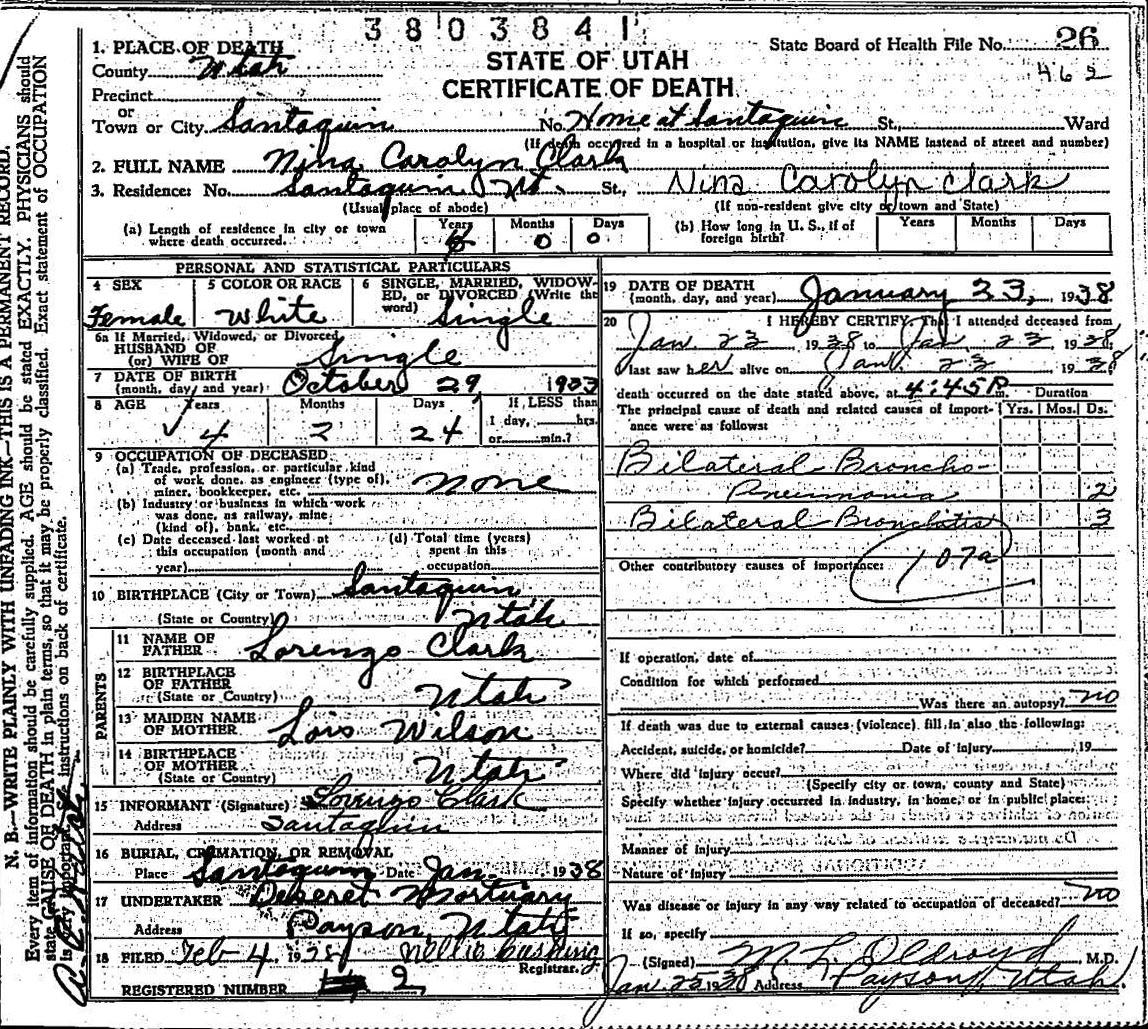 3803841
1. PLACE OF DEATH
County Utah
Precinct
or
Town or City Santaquin No. Home at Santaquin St., Ward
(If death occurred in a hospital or institution, give its NAME instead of street and number)
STATE OF UTAH
CERTIFICATE OF DEATH
State Board of Health File No. 26
462
2. FULL NAME Nina Carolyn Clark
3. Residence: No. Santaquin Ut. St., Nina Carolyn Clark
(Usual place of abode) (If non-resident give city or town and State)
(a) Length of residence in city or town where death occurred. Years 4 Months 0 Days 0
(b) How long in U. S., if of foreign birth? Years Months Days
PERSONAL AND STATISTICAL PARTICULARS
4 SEX
Female
5 COLOR OR RACE
White
6 SINGLE, MARRIED, WIDOWED, or DIVORCED (Write the word)
Single
6a If Married, Widowed, or Divorced
HUSBAND OF
(or) WIFE OF Single
7 DATE OF BIRTH
(month, day and year) October 29, 1933
8 AGE Years 4 Months 2 Days 24
If LESS than
1 day, hrs.
or min.?
9 OCCUPATION OF DECEASED
(a) Trade, profession, or particular kind
of work done, as engineer (type of),
miner, bookkeeper, etc. none
(b) Industry or business in which work
was done, as railway, mine
(kind of), bank, etc.
(c) Date deceased last worked at
this occupation (month and
year)
(d) Total time (years)
spent in this
occupation
10 BIRTHPLACE (City or Town) Santaquin
(State or Country) Utah
PARENTS
11 NAME OF
FATHER Lorenzo Clark
12 BIRTHPLACE
OF FATHER
(State or Country) Utah
13 MAIDEN NAME
OF MOTHER Lois Wilson
14 BIRTHPLACE
OF MOTHER
(State or Country) Utah
15 INFORMANT (Signature) Lorenzo Clark
Address Santaquin
16 BURIAL, CREMATION, OR REMOVAL
Place Santaquin Date Jan. 1938
17 UNDERTAKER Deseret Mortuary
Address Payson, Utah
18 FILED Feb 4, 1938 Nellie Cushing
Registrar.
REGISTERED NUMBER 2
19 DATE OF DEATH
(month, day, and year) January 23, 1938
20 I HEREBY CERTIFY That I attended deceased from
Jan 23 1938 to Jan 23 1938
I last saw her alive on Jan 23 1938
death occurred on the date stated above, at 4:45 P m. Duration
The principal cause of death and related causes of importance were as follows: Yrs. Mos. Ds.
Bilateral Broncho-
Pneumonia 2
Bilateral Bronchitis 3
Other contributory causes of importance: 107a
If operation, date of
Condition for which performed
Was there an autopsy? no
If death was due to external causes (violence) fill in also the following:
Accident, suicide, or homicide? Date of injury , 19
Where did injury occur?
(Specify city or town, county and State)
Specify whether injury occurred in industry, in home, or in public place:
Manner of injury
Nature of injury
Was disease or injury in any way related to occupation of deceased? no
If so, specify
(Signed) M. L. Oldroyd, M.D.
Jan 25 1938 Address Payson, Utah.
N. B.—WRITE PLAINLY WITH UNFADING INK—THIS IS A PERMANENT RECORD.
Every item of information should be carefully supplied. AGE should be stated EXACTLY. PHYSICIANS should
state CAUSE OF DEATH in plain terms, so that it may be properly classified. Exact statement of OCCUPATION
is very important. See instructions on back of certificate.